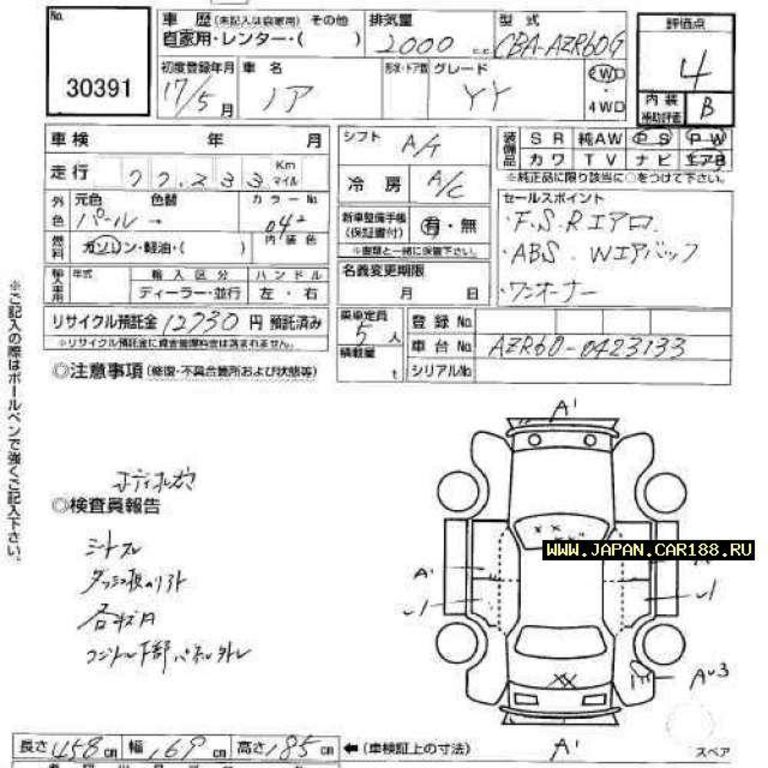 No.
30391
車歴 (未記入は自家用) その他
自家用・レンター・( )
排気量
2000 c.c.
型式
CBA-AZR60G
評価点
4
初度登録年月
17/5月
車名
ノア
形状・ドア数
グレード
YY
2WD
4WD
内装補助評価
B
車検 年 月
走行 77,233 Km マイル
外色 元色 色替 カラーNo.
パール → 042
燃料 ガソリン・軽油・( ) 内装色
輸入車用 年式 輸入区分 ハンドル
ディーラー・並行 左・右
リサイクル預託金 12730 円 預託済み
※リサイクル預託金に資金管理料金は含まれません。
シフト A/T
冷房 A/C
新車整備手帳(保証書付) 有・無
※書類と一緒に保管下さい。
名義変更期限
月 日
乗車定員 5人
積載量 t
装備品 SR 純AW PS PW
カワ TV ナビ エアB
※純正品に限り該当に○をつけて下さい。
セールスポイント
・F.S.Rエアロ
・ABS. Wエアバッグ
・ワンオーナー
登録No.
車台No. AZR60-0423133
シリアルNo.
◎注意事項 (修復・不具合箇所および状態等)
◎検査員報告
シートスレ
各キズ凹
※ご記入の際はボールペンで強くご記入下さい。
A'
A'
A
WWW.JAPAN.CAR188.RU
A'
スペア
長さ 458 cm 幅 169 cm 高さ 185 cm ←(車検証上の寸法)